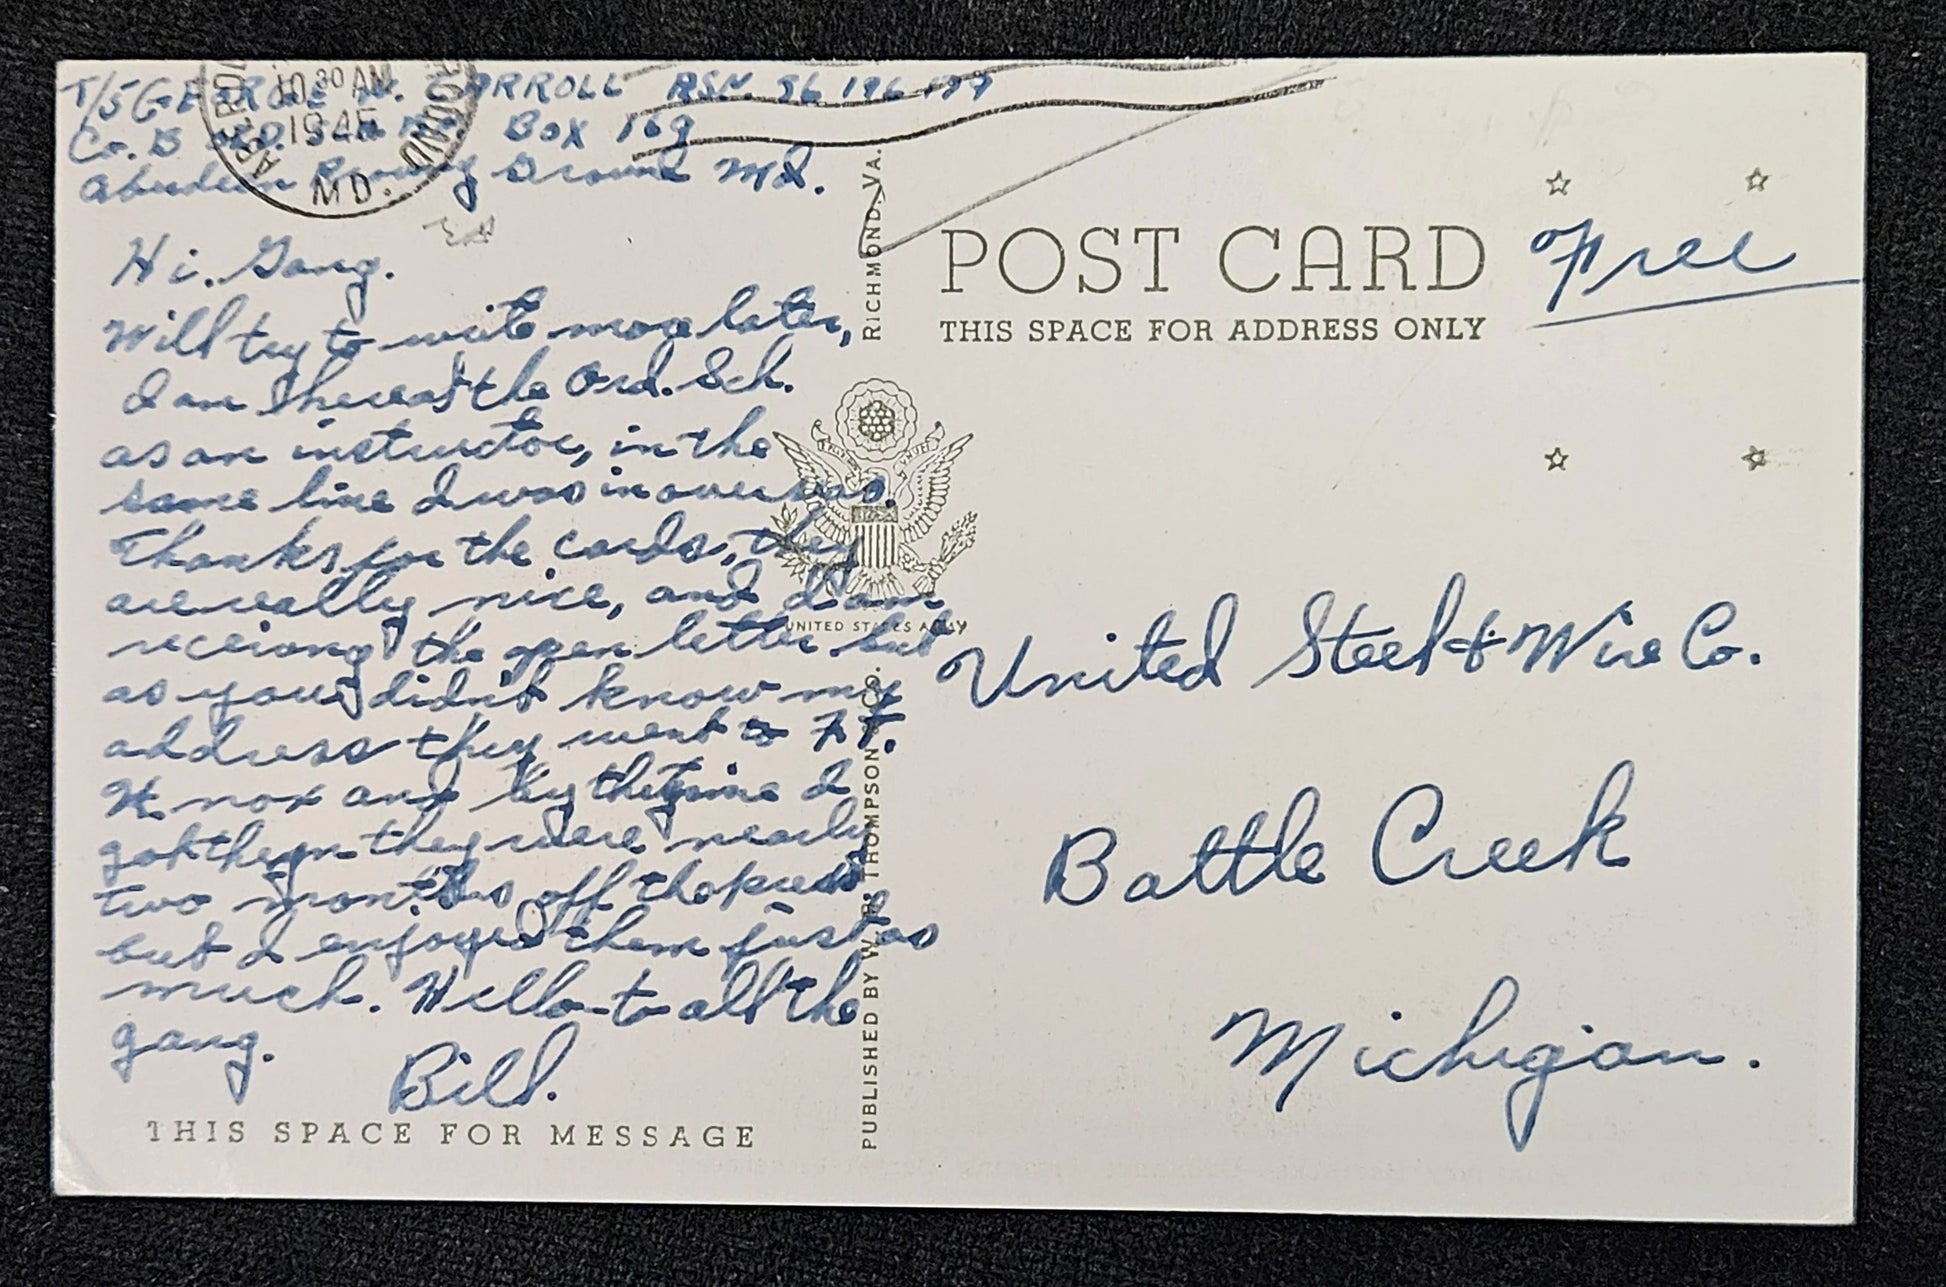 T/5 GEORGE W. CARROLL ASN. 36 196 199
Co. B ORD. Sch. Box 169
Aberdeen Proving Ground Md.
10 30 AM
1945
MD.
Hi. Gang.
Will try to write more later,
I am here at the Ord. Sch.
as an instructor, in the
same line I was in overseas.
Thanks for the cards, they
are really nice, and I am
receiong the open letter but
as you didn't know my
address they went to FT.
Knox and by the time I
got them they were nearly
two months off the press
but I enjoyed them just as
much. Hello to all the
gang.
Bill.
THIS SPACE FOR MESSAGE
PUBLISHED BY W. R. THOMPSON & CO. RICHMOND, VA.
UNITED STATES ARMY
POST CARD
THIS SPACE FOR ADDRESS ONLY
Free
United Steel & Wire Co.
Battle Creek
Michigan.